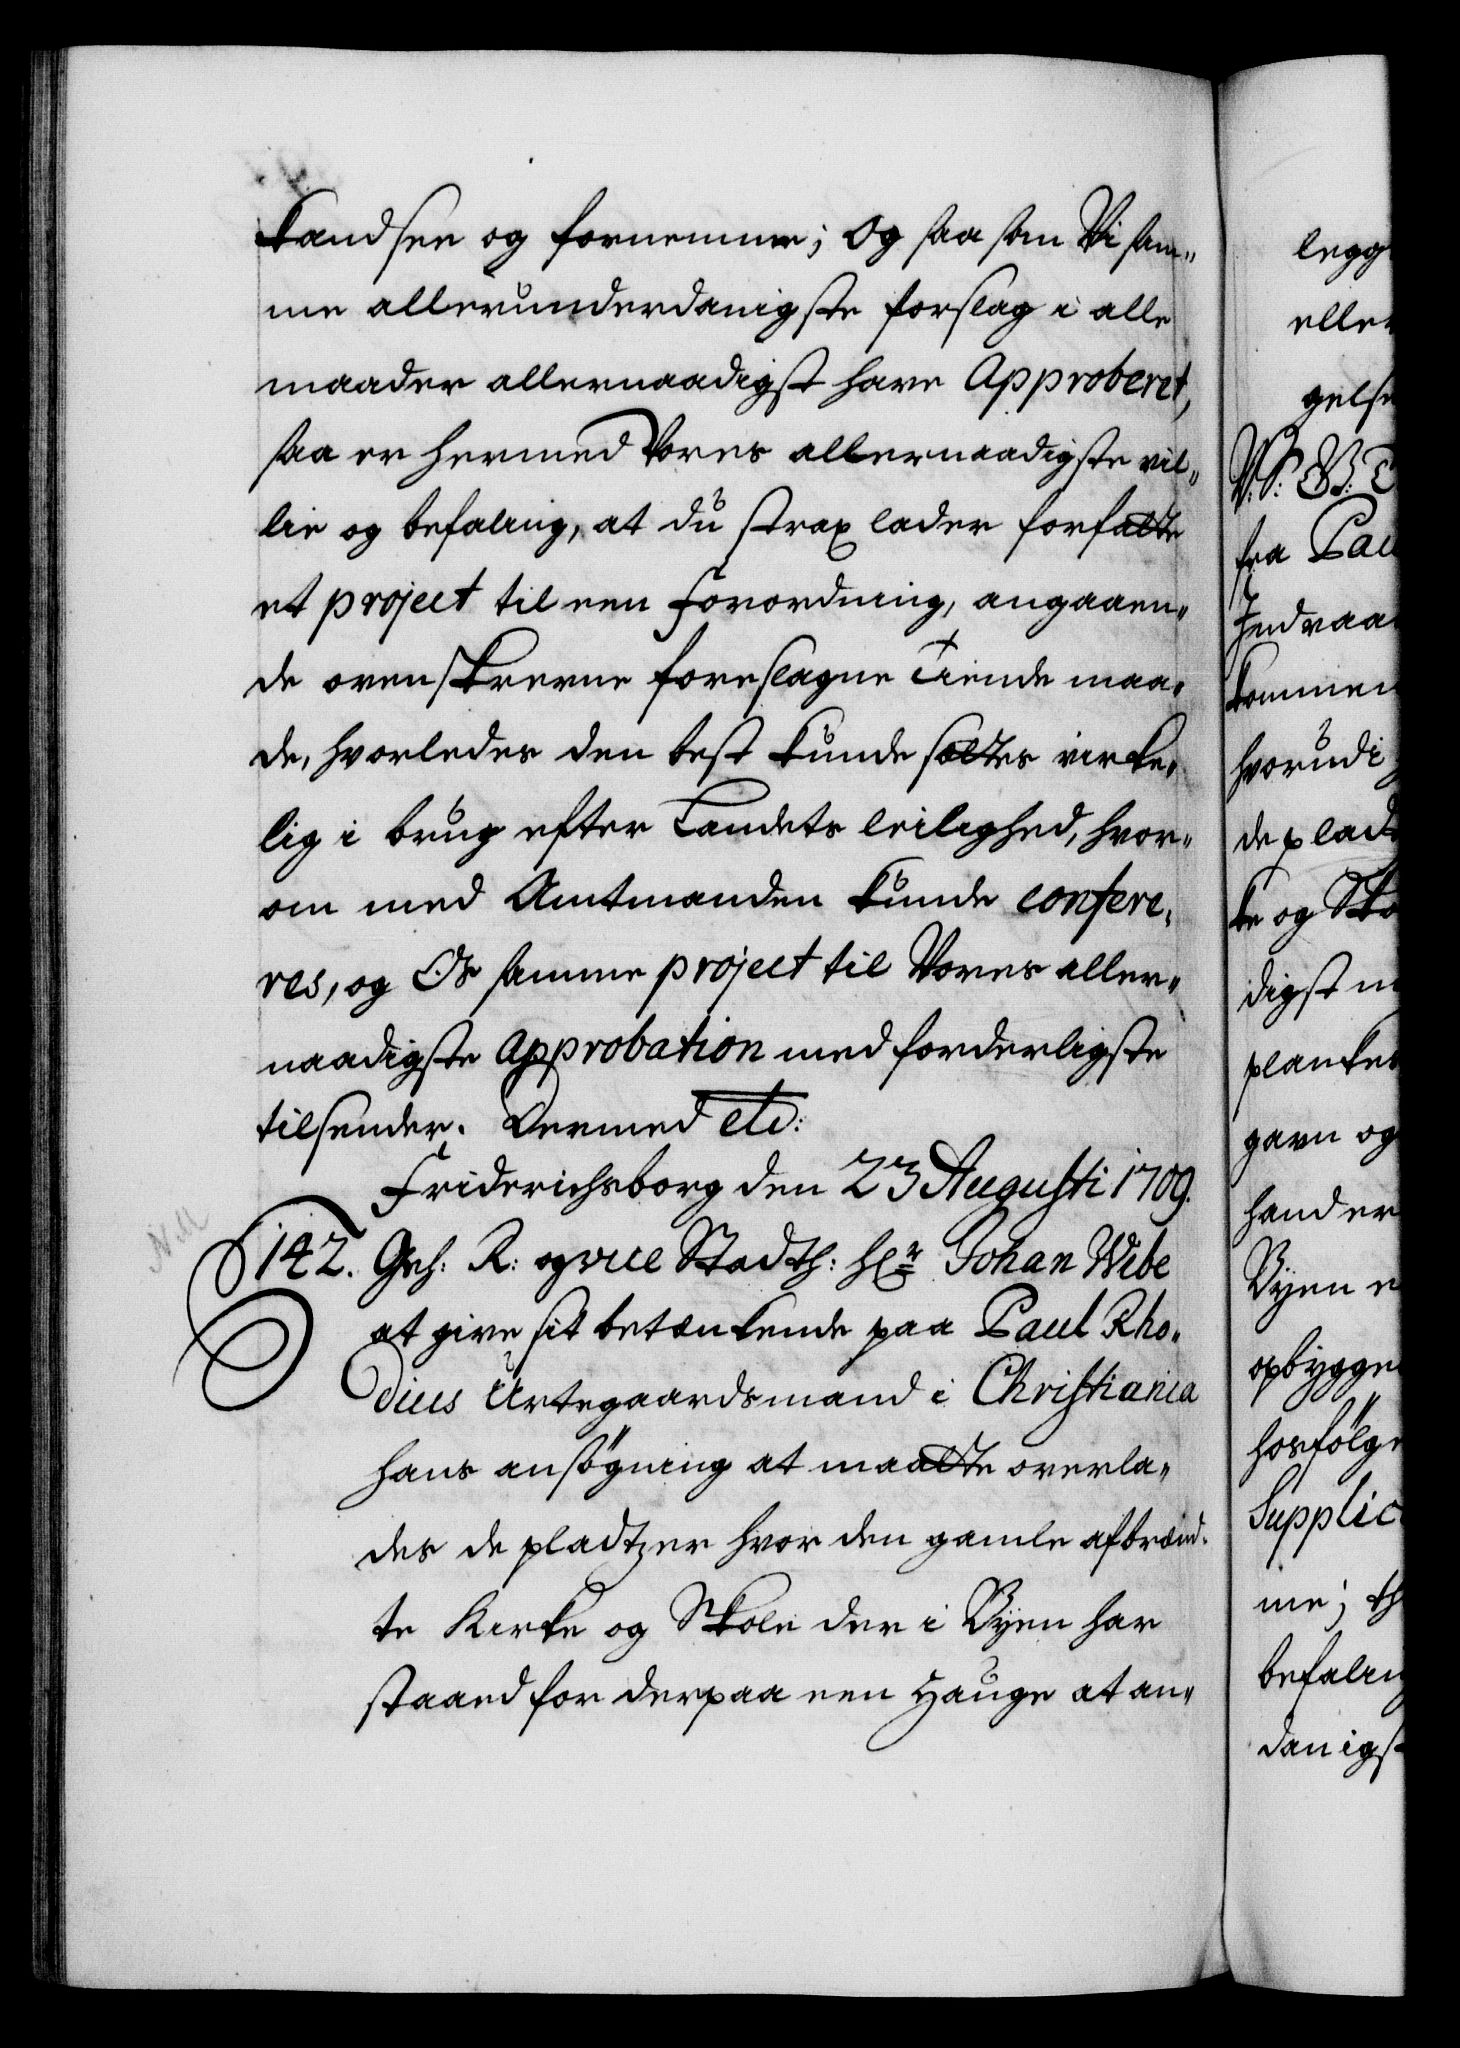 kand see og fornemme; Og saa som Vi sam„
me allerunderdanigste forslag i alle
maader allernaadigst have Approberet,
saa er hermed Vores allernaadigste vil„
lie og befaling, at du strax lader forfatte
et project til een Forordning, angaaen„
de ovenskrevne foreslagne Tiende maa„
de, hvorledes den best kunde sættes virke„
lig i brug efter Landets leilighed, hvor„
om med Amtmanden kunde confere„
res, og Os samme project til Vores aller„
naadigste Approbation med forderligste
tilsender. Dermed etc:
Friderichsborg den 23 Augusti 1709.
142. Geh: R: og vice Stadth: Hr Johan Wibe
at give sit betænkende paa Paul Rho„
dius Urtegaardsmand i Christiania
hans ansøgning at maatte overla„
des de pladtzer hvor den gamle afbrænd„
te Kirke og Skole der i Byen har
staaed for derpaa een Hauge at an„
legg
eller
gelse
V. S. G. T
fra Pau
Indvaa
kommen
hvorudi
de plad
ke og Sko
digst
planker
gavn og
hand er
Byen
opbygge
hosfølge
Supplic
me; th
befaling
danigst